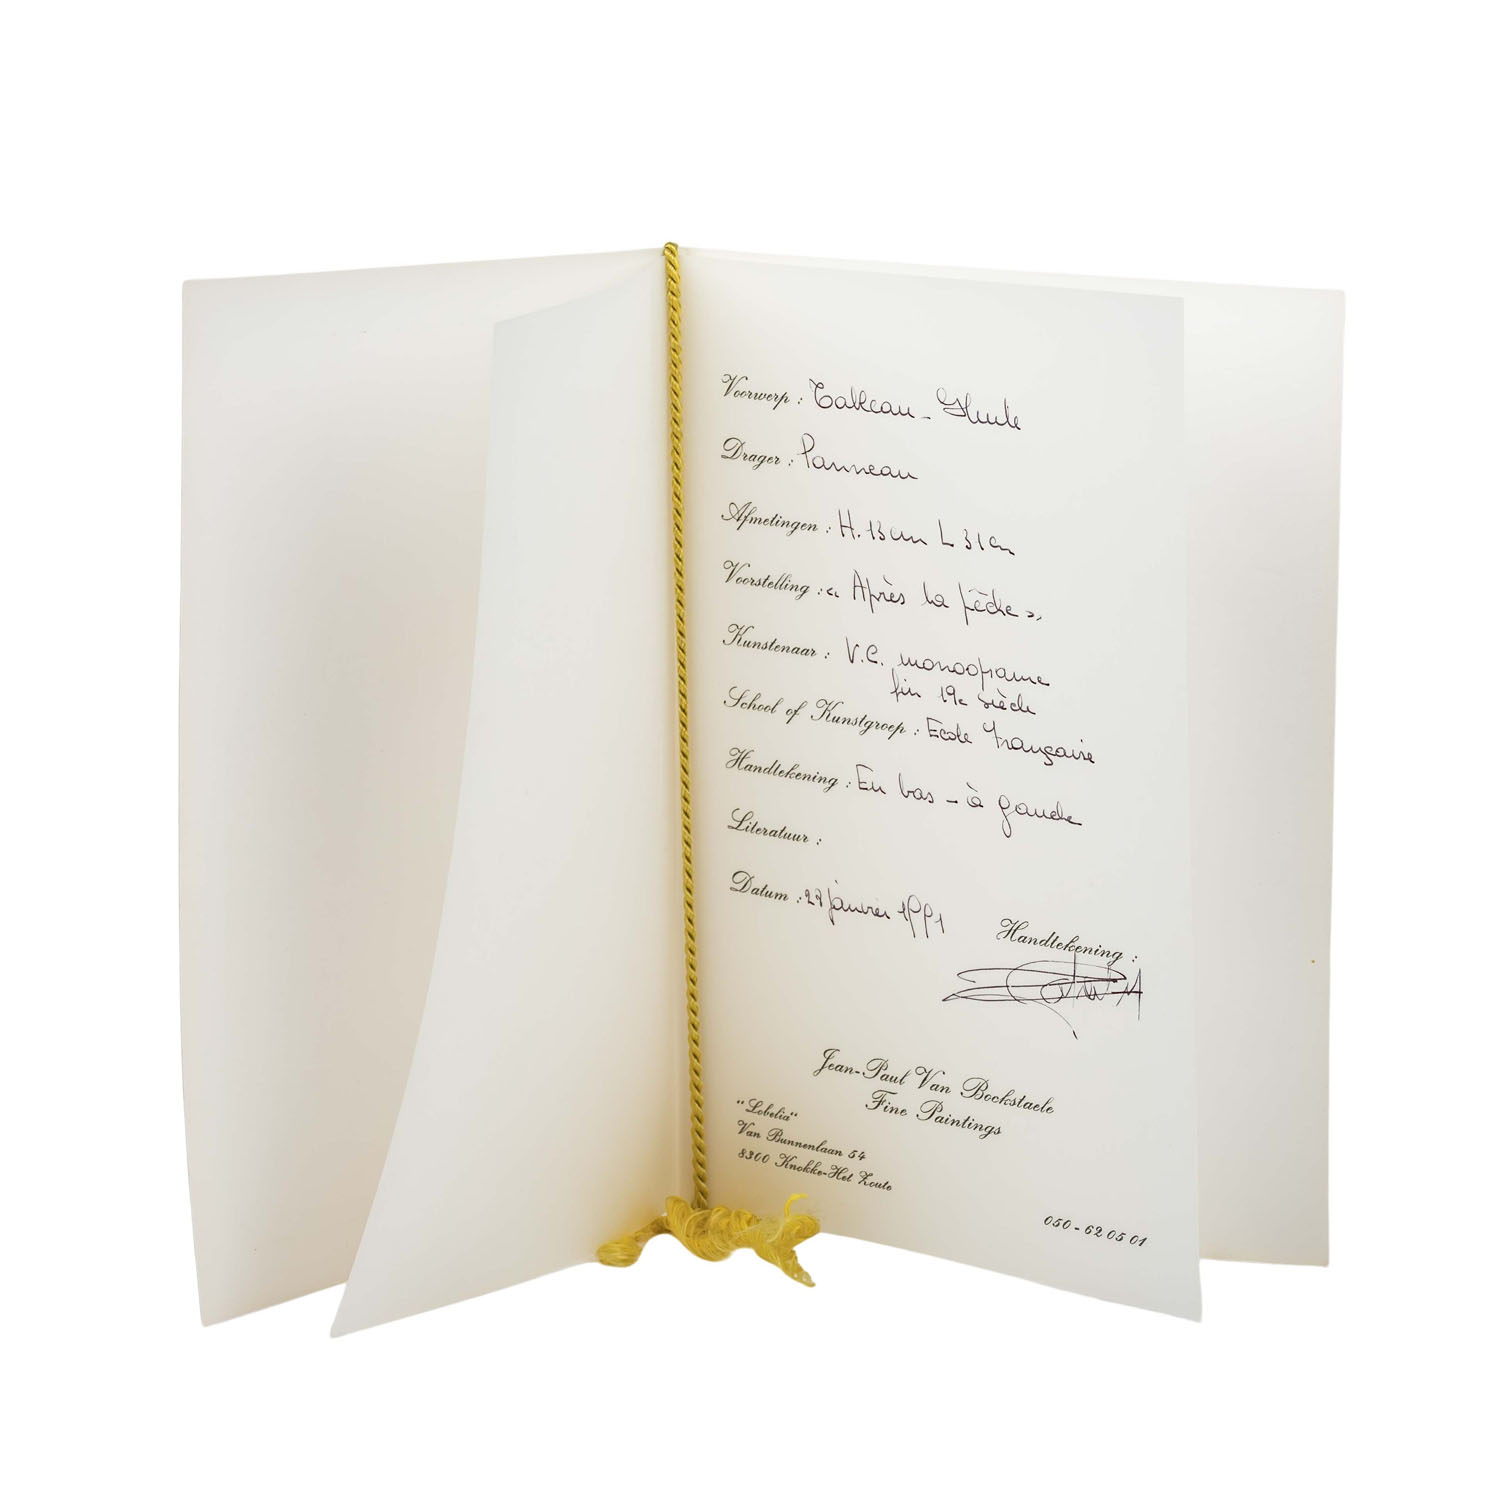 Voorwerp : Tableau - Huile
Drager : Panneau
Afmetingen : H. 13 cm L 31 cm
Voorstelling : « Après la pêche »
Kunstenaar : V.C. monograme
fin 19e siècle
School of Kunstgroep : Ecole Française
Handtekening : En bas - à gauche
Literatuur :
Datum : janvier 1991
Handtekening :
Jean-Paul Van Bockstaele
Fine Paintings
"Lobelia"
Van Bunnenlaan 54
8300 Knokke-Het Zoute
050 - 62 05 01